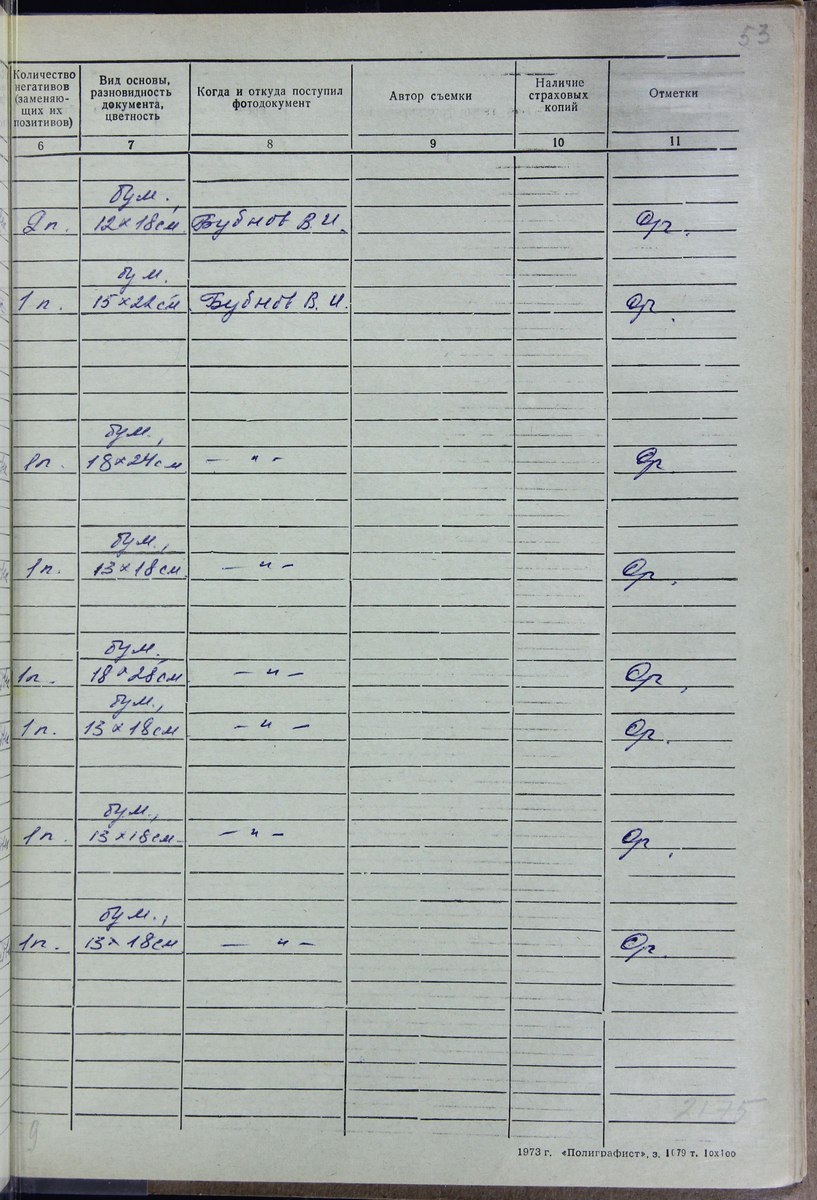 53
Количество негативов (заменяющих их позитивов)
Вид основы, разновидность документа, цветность
Когда и откуда поступил фотодокумент
Автор съемки
Наличие страховых копий
Отметки
6 7 8 9 10 11
бум.,
2 п. 12 × 18 см Бубнов В. И. Ор.
бум.
1 п. 15 × 22 см. Бубнов В. И. Ор.
бум.,
1 п. 18 × 24 см — " — Ор.
бум.,
1 п. 13 × 18 см — " — Ор.
бум.,
1 п. 18 × 28 см — " — Ор.
бум.,
1 п. 13 × 18 см — " — Ор.
бум.,
1 п. 13 × 18 см — " — Ор.
бум.,
1 п. 13 × 18 см — " — Ор.
9
2175
1973 г. «Полиграфист», з. 1079 т. 10х100